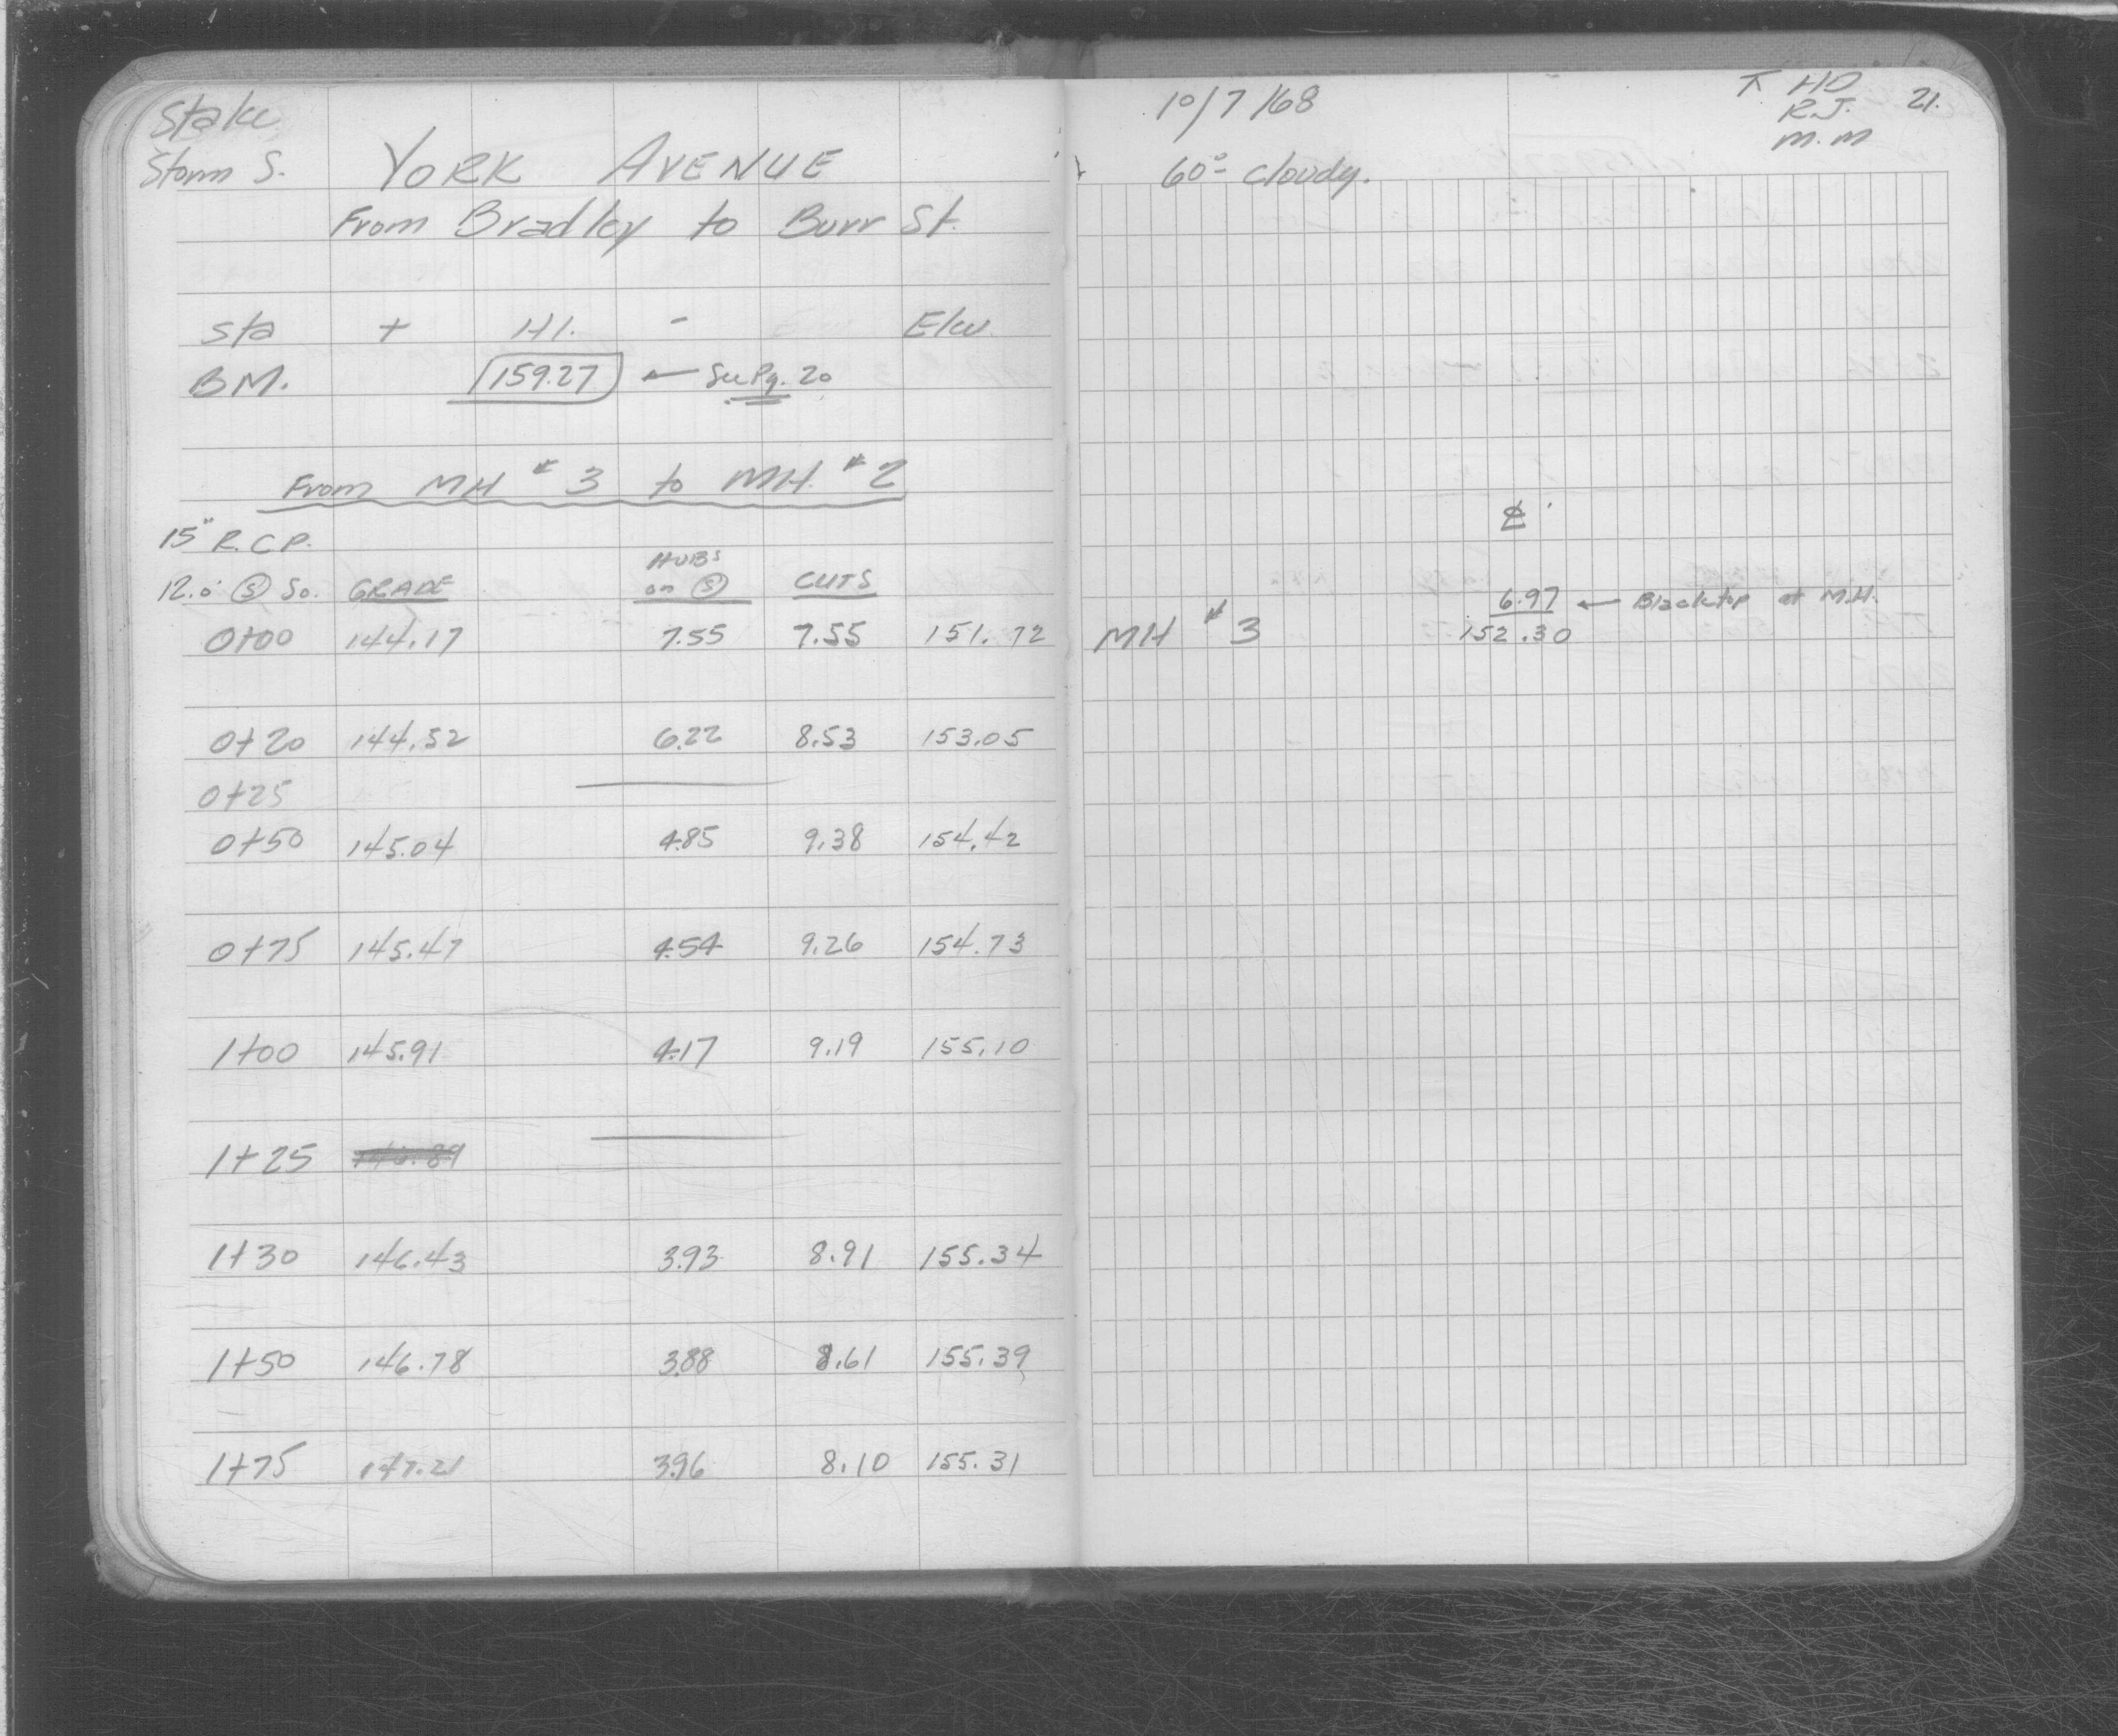 Stake
Storm S. YORK AVENUE
From Bradley to Burr St.
Sta + H.I. - Elev.
BM. 159.27 ← See Pg. 20
From MH #3 to MH. #2
15" R.C.P.
12.0' Ⓢ So. GRADE HUBS on Ⓢ CUTS
0+00 144.17 7.55 7.55 151.72
0+20 144.52 6.22 8.53 153.05
0+25
0+50 145.04 4.85 9.38 154.42
0+75 145.47 4.54 9.26 154.73
1+00 145.91 4.17 9.19 155.10
1+25 146.89
1+30 146.43 3.93 8.91 155.34
1+50 146.78 3.88 8.61 155.39
1+75 147.21 3.96 8.10 155.31
10/7/68
60° - cloudy.
⊼ HD
R.J.
M.M
21.
℄
6.97 ← Blacktop at M.H.
MH #3 152.30